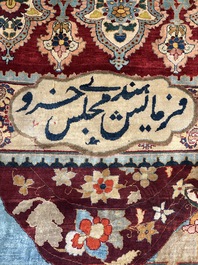 فرمایش هندی مجلس خسرو